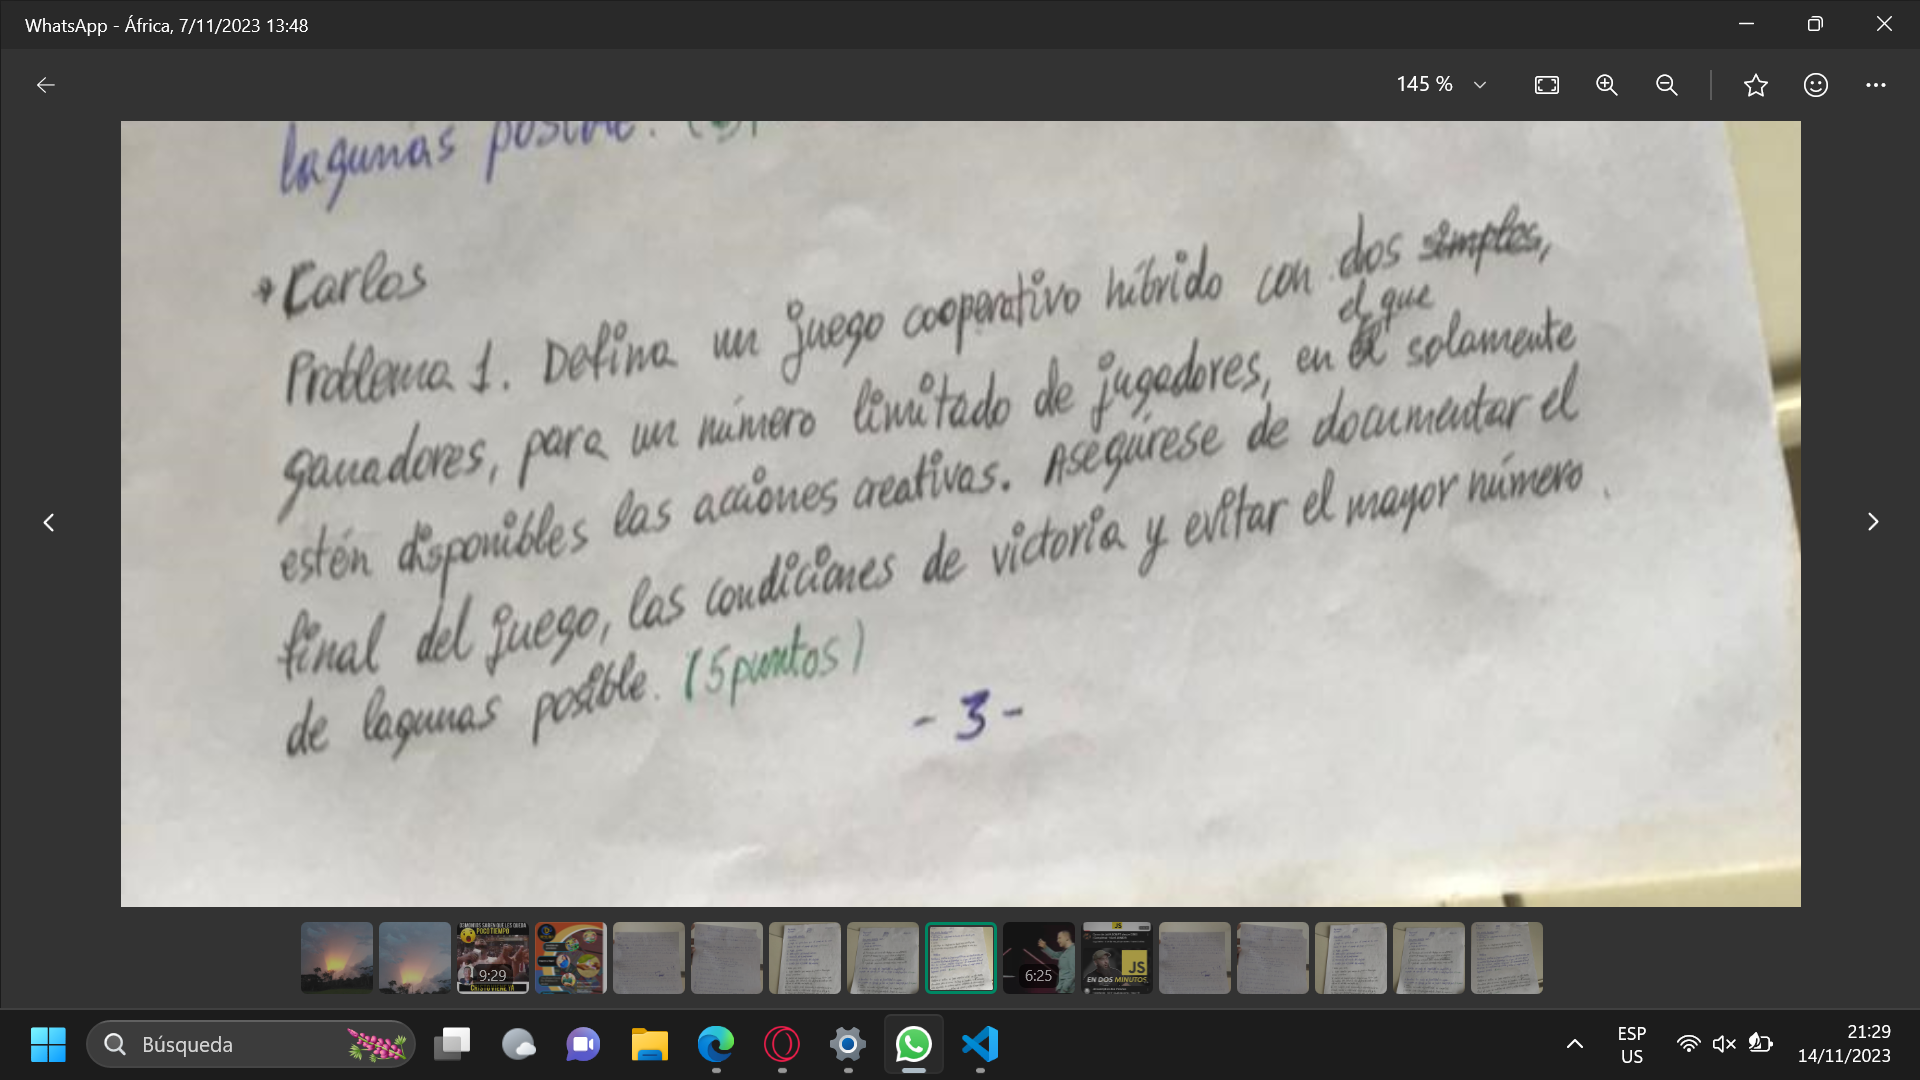 WhatsApp - África, 7/11/2023 13:48
145 %
lagunas posible.
* Carlos
Problema 1. Defina un juego cooperativo híbrido con dos simples,
el que
ganadores, para un número limitado de jugadores, en solamente
estén disponibles las acciones creativas. Asegúrese de documentar el
final del juego, las condiciones de victoria y evitar el mayor número
de lagunas posible. (5 puntos)
- 3 -
POCO TIEMPO
9:29
CRISTO VIENE YA
6:25
JS
JS
EN DOS MINUTOS
Búsqueda
ESP
US
21:29
14/11/2023